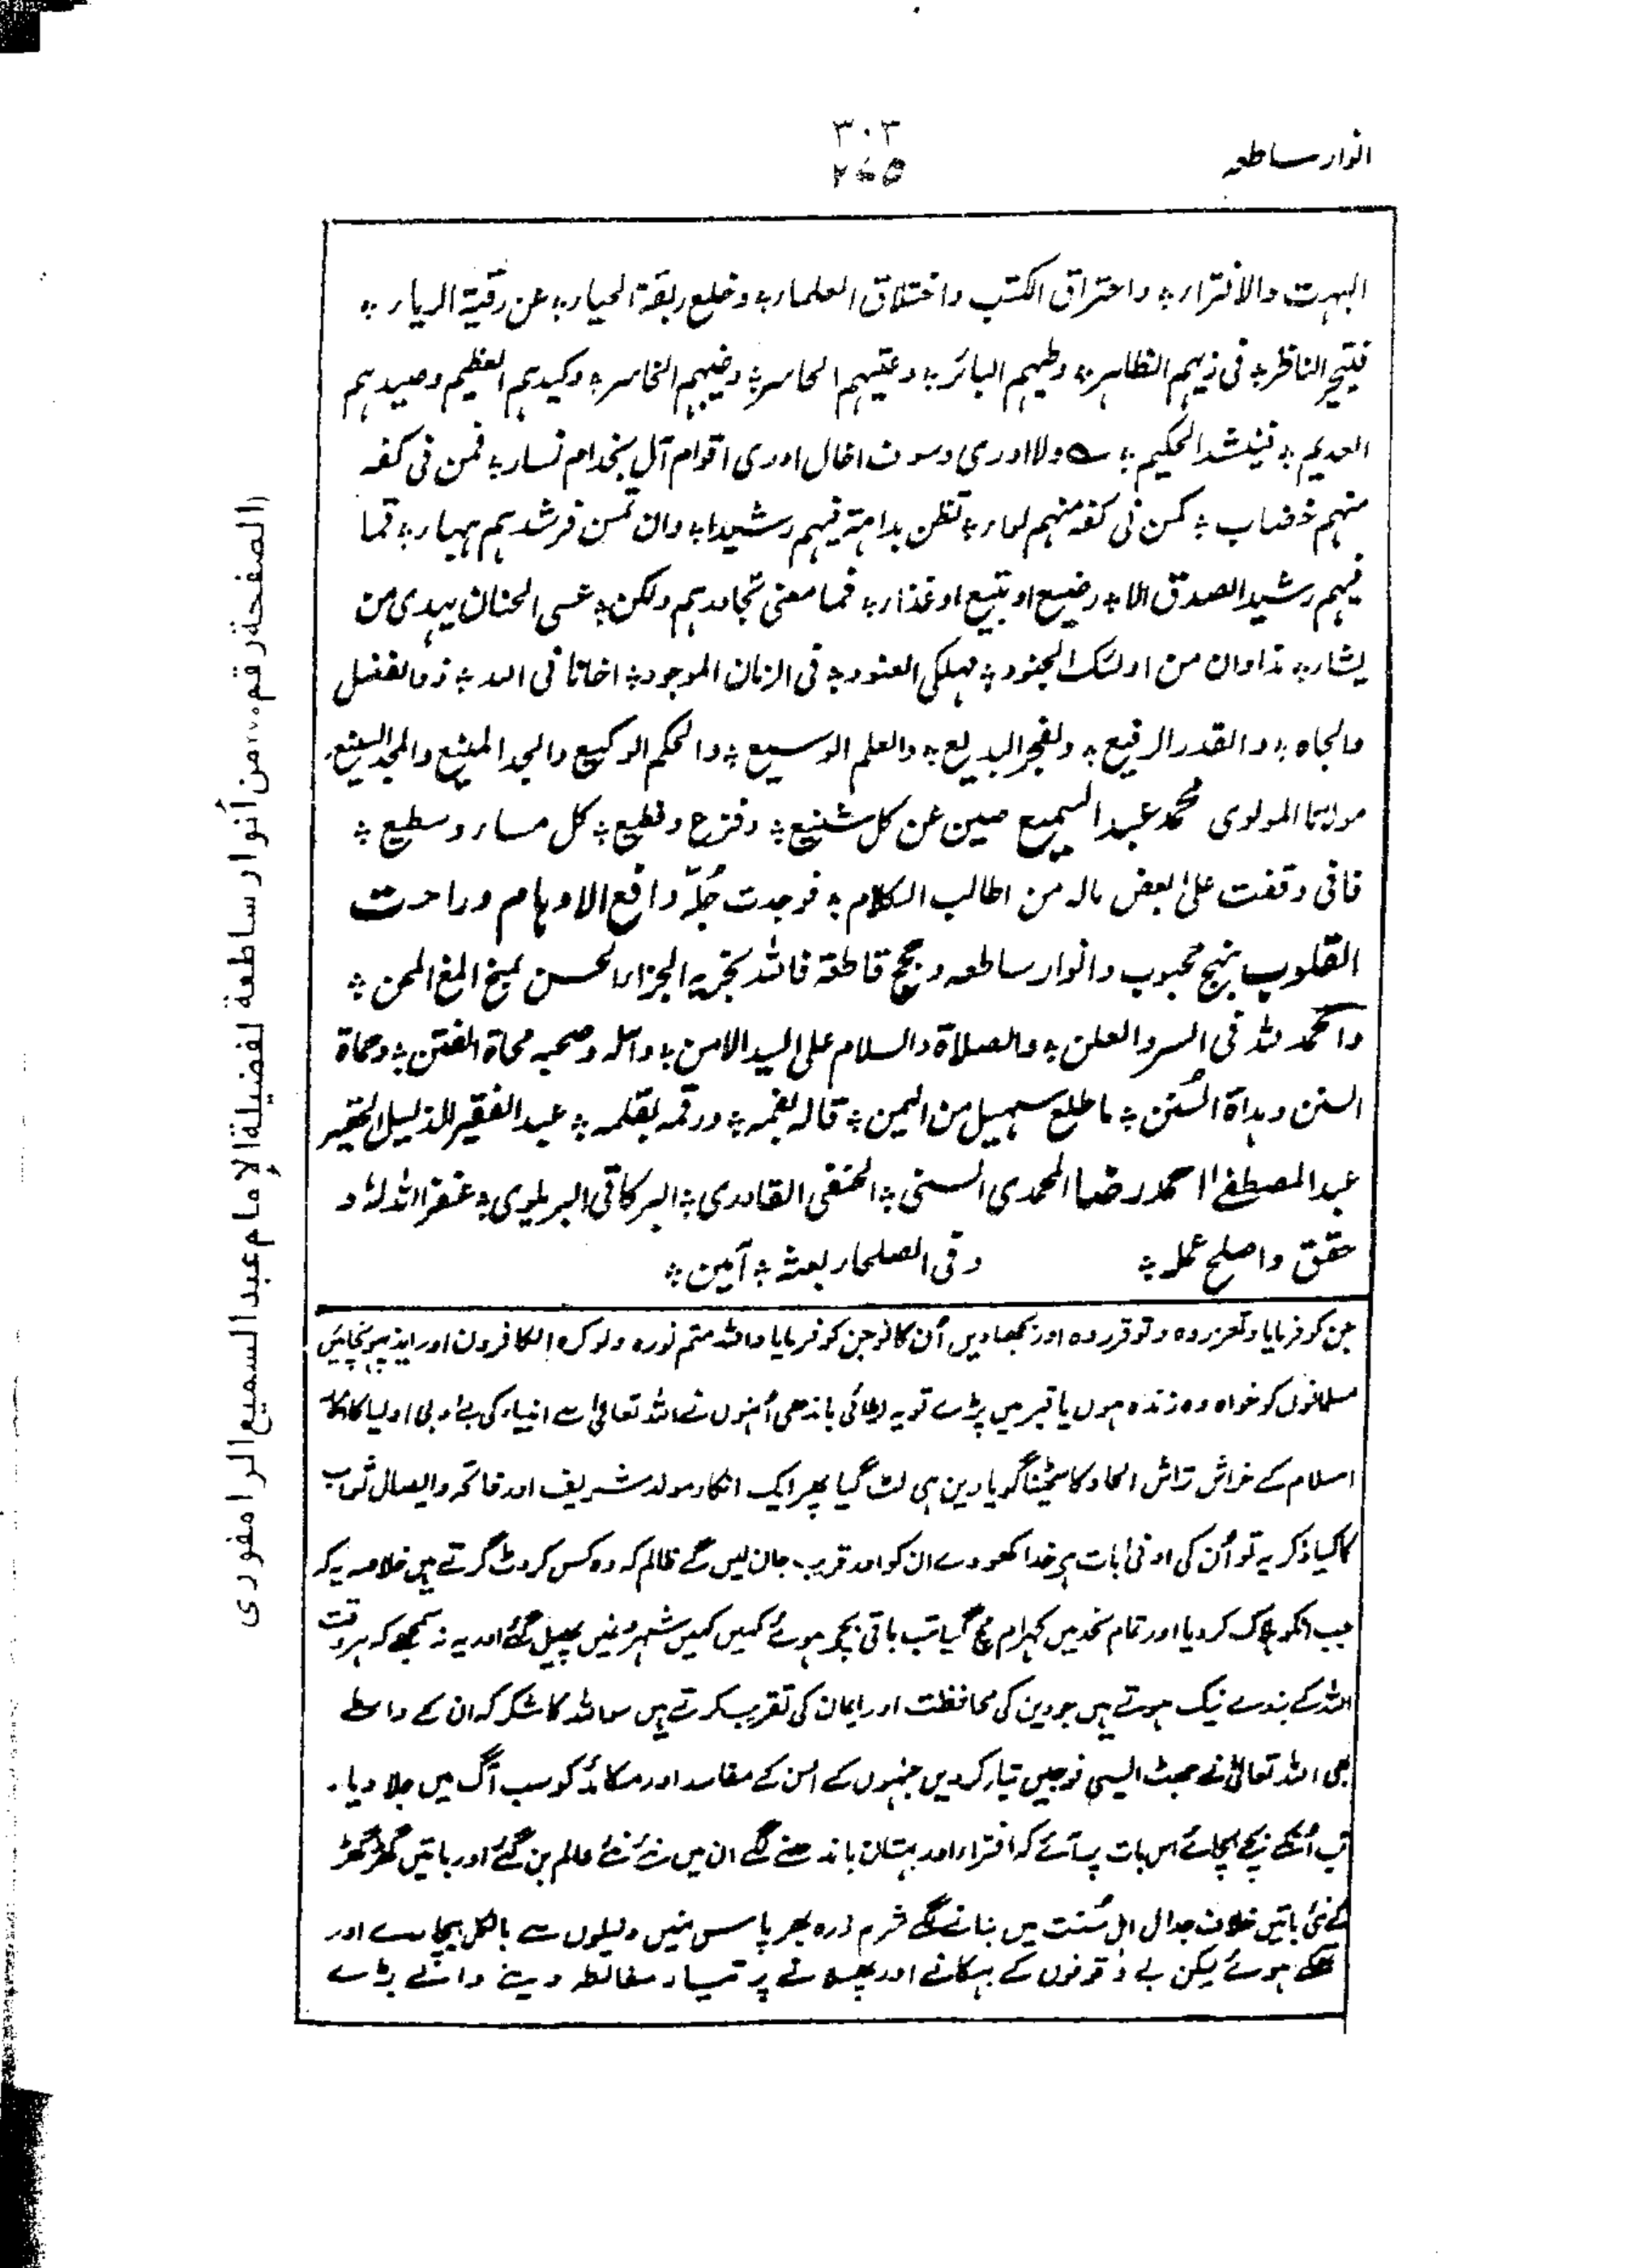 انوار ساطعہ
٣٠٣
۲۷۵
البہت والافتراء ؛ واختراق الکتب واختلاق العلماء ؛ وخلع ربقۃ الحیاء ؛ عن رقبۃ الریاء ؛
فیتحیر الناظر ؛ فی زیہم الظاہر ؛ وطیہم البائر ؛ وعتیہم الخاسر ؛ وکیدہم العظیم وصیدہم
العدیم ؛ فینشد الحکیم ؛ ولا ادری وسوف اخال ادری اقوام آل نجد ام نساء ؛ فمن فی کفہ
منہم خضاب ؛ کمن فی کفہ منہم لواء ؛ تظن بداہۃ فیہم رشیدا ؛ وان تمس فرشدہم ہباء ؛ فما
فیہم رشید الصدق الا ؛ رضیع او تبیع او غذاء ؛ فما معنی تجاہدہم ولکن ؛ عسی الحنان یہدی من
یشاء ؛ ہذا وان من اولئک الجنود ؛ مہلکی العنود ؛ فی الزمان الموجود ؛ اخانا فی اللہ ؛ ذا الفضل
والجاہ ؛ والقدر الرفیع ؛ والفجر البدیع ؛ والعلم الوسیع ؛ والحکم الوکیع والجد المنیع والمجد السنیع
مولانا المولوی محمد عبد السمیع صین عن کل شنیع ؛ وفزع وفظیع ؛ کل مساء وسطیع ؛
فانی وقفت علیٰ بعض مالہ من اطائب الکلام ؛ فوجدت جُلّہ دافع الاوہام وراحت
القلوب بنہج محبوب وانوار ساطعہ وحجج قاطعۃ فاللہ یجزیہ الجزاء الحسن المحن ؛
والحمد للہ فی السر والعلن ؛ والصلاۃ والسلام علی السید الامن ؛ وآلہ وصحبہ محاۃ الفتن ؛ وحماۃ
السنن وہداۃ السُنن ؛ ما طلع سہیل من الیمن ؛ قالہ بفمہ ؛ ورقمہ بقلمہ ؛ عبد الفقیر الذلیل الحقیر
عبد المصطفیٰ احمد رضا المحمدی السنی ؛ الحنفی القادری ؛ البرکاتی البریلوی ؛ غفر اللہ لہٗ و
حقق واصلح عملہ ؛ وفی الصلحاء بعثہ ؛ آمین ؛
جن کو فرمایا وتعزروہ وتوقروہ اور بجھادیں اُن کا نور جن کو فرمایا واللہ متم نورہ ولوکرہ الکافرون اور ایذا پہونچائیں
مسلمانوں کو خواہ وہ زندہ ہوں یا قبر میں پڑے تو یہ لڑائی باندھی اُنہوں نے اللہ تعالیٰ سے انبیاء کی بے ادبی اولیا کا انکار
اسلام کے خراش تراش الحاد کا گویا دین ہی لٹ گیا پھر ایک انکار مولد شریف اور فاتحہ و ایصال ثواب
کا کیا ذکر یہ تو اُن کی ادنیٰ بات ہے خدا کھودے ان کو اور قریب جان لیں گے ظالم کہ وہ کس کروٹ گرتے ہیں خلاصہ یہ کہ
جب انکو ہلاک کردیا اور تمام نجد میں کہرام مچ گیا تب باقی بچے ہوئے کہیں کہیں شہرونمیں پھیل گئے اور یہ نہ سمجھے کہ ہر وقت
اللہ کے بندے نیک ہوتے ہیں جو دین کی محافظت اور ایمان کی تقریب کرتے ہیں سو اللہ کا شکر کہ ان کے واسطے
بھی اللہ تعالیٰ نے جھٹ ایسی فوجیں تیار کردیں جنہوں کے اس کے مفاسد اور مکائد کو سب آگ میں جلا دیا۔
تب اُنکے بچے بچائے اس بات پہ آئے کہ افتراء اور بہتان باندھنے لگے ان میں نئے نئے عالم بن گئے اور باتیں گھڑ گھڑ
کے نئی باتیں خلاف جدال اہل سُنت میں بنانے لگے شرم ذرہ بھر پاس نہیں دلیلوں سے بالکل بیچارے اور
تھکے ہوئے لیکن بے وقوفوں کے بہکانے اور پھسلانے پر تیار مغالطہ دینے والے بڑے
الصفحة رقم من أنوار ساطعة لفضيلة الإمام عبد السميع الرامفوري